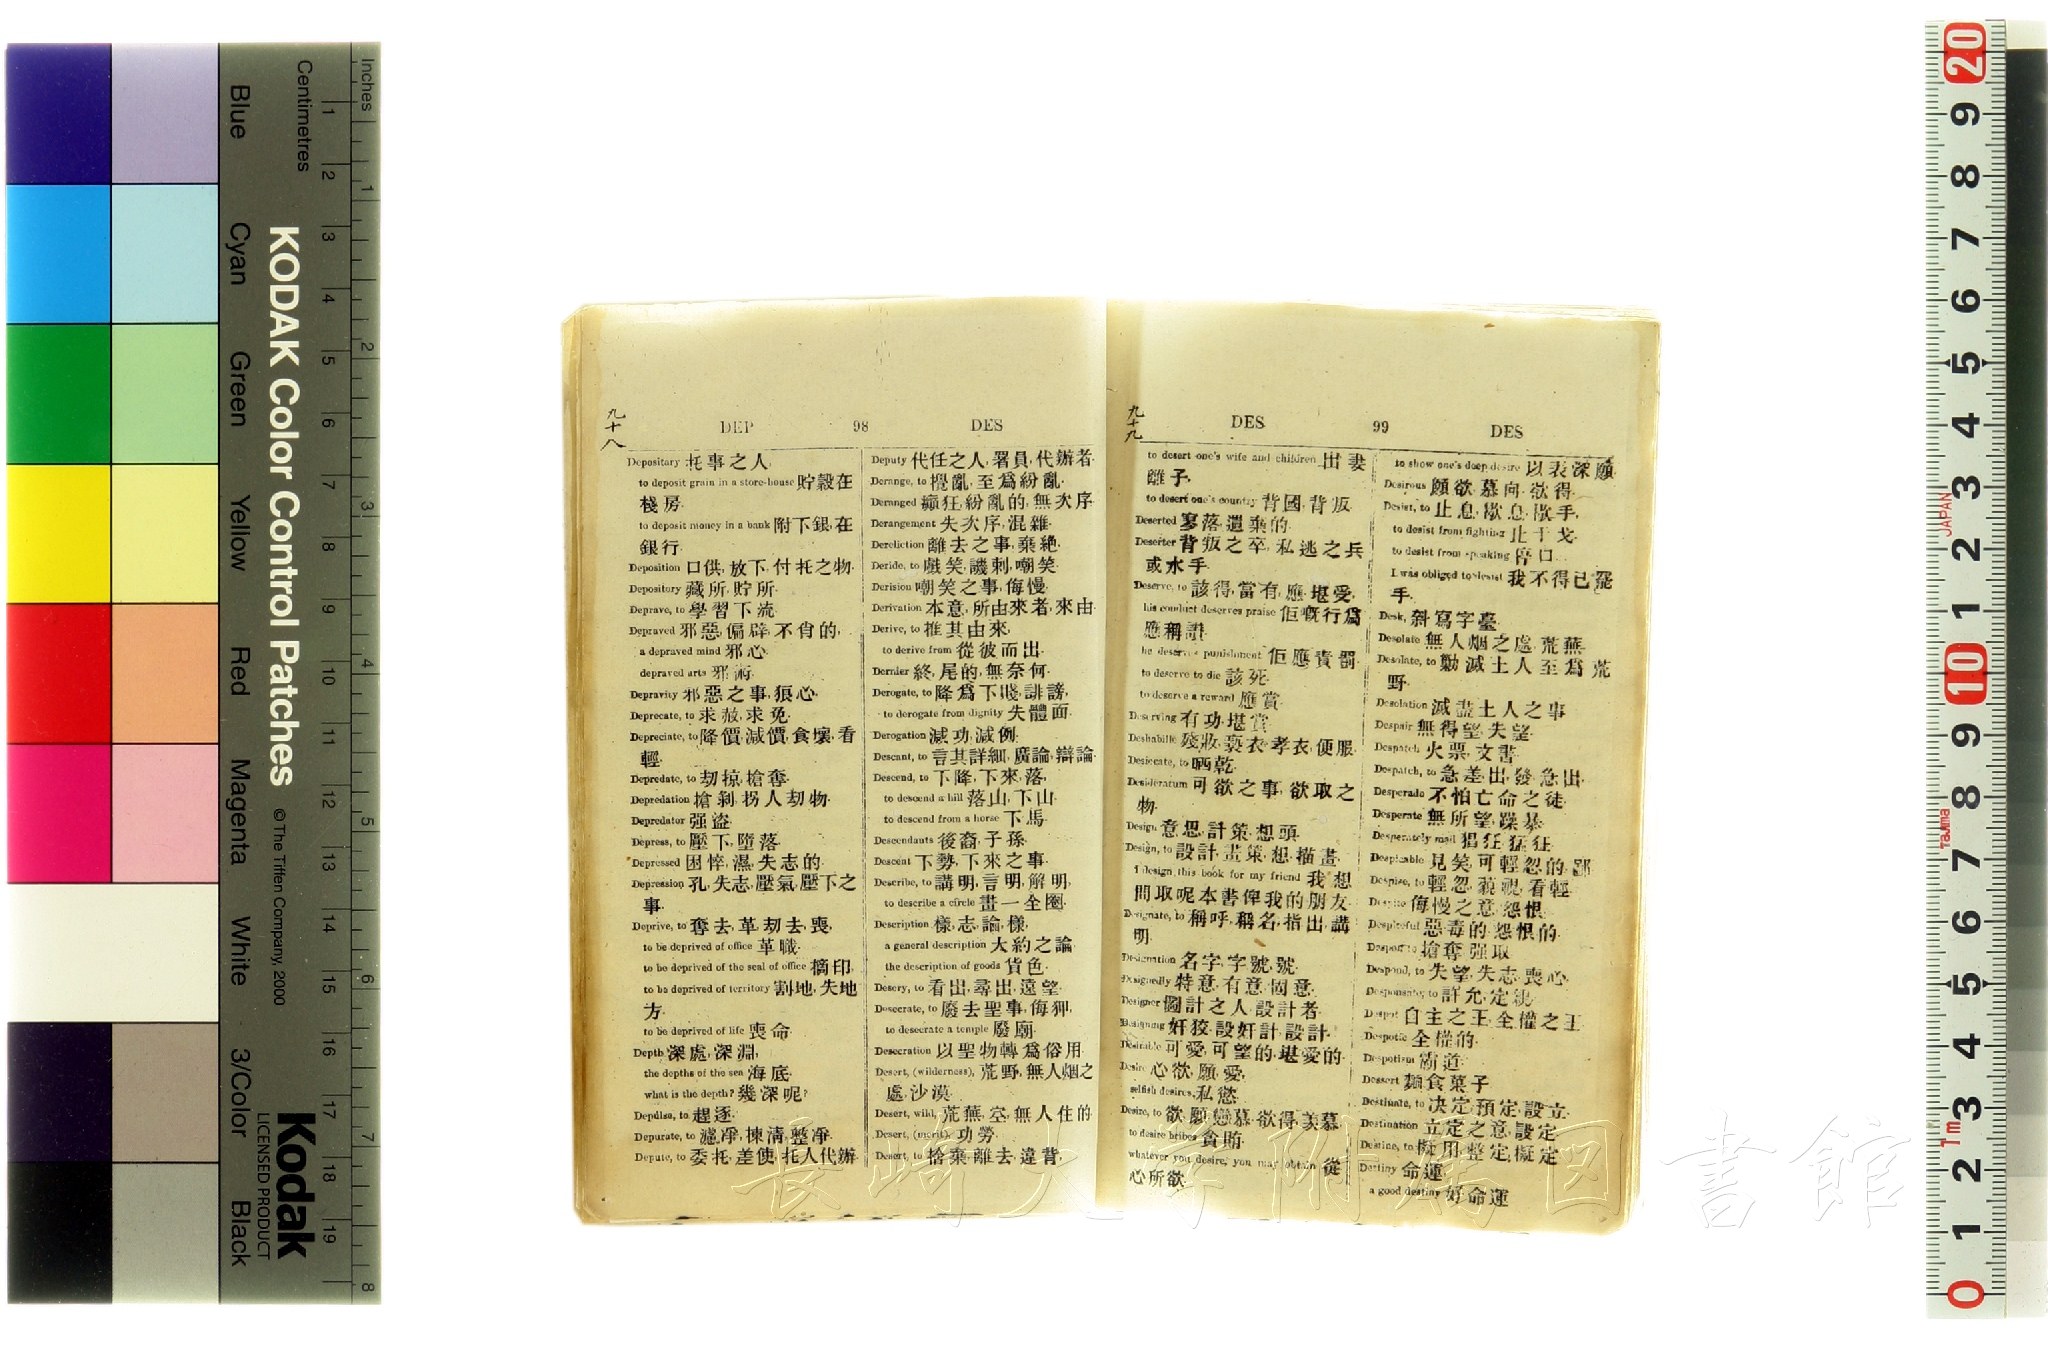 Inches
Centimetres
Blue
Cyan
Green
Yellow
Red
Magenta
White
3/Color
Black
KODAK Color Control Patches
© The Tiffen Company, 2000
Kodak
LICENSED PRODUCT
九十八
DEP 98 DES
Depositary 托事之人,
to deposit grain in a store-house 貯穀在
棧房.
to deposit money in a bank 附下銀,在
銀行.
Deposition 口供,放下,付托之物.
Depository 藏所,貯所.
Deprave, to 學習下流.
Depraved 邪惡,偏辟,不肖的,
a depraved mind 邪心.
depraved arts 邪術.
Depravity 邪惡之事,狠心.
Deprecate, to 求赦,求免.
Depreciate, to 降價,減價,食壞,看
輕.
Depredate, to 刼掠,搶奪.
Depredation 搶剝,拐人刼物.
Depredator 强盜.
Depress, to 壓下,墮落.
Depressed 困悴,濕,失志的.
Depression 孔,失志,壓氣,壓下之
事.
Deprive, to 奪去,革,刼去,喪,
to be deprived of office 革職.
to be deprived of the seal of office 摘印.
to be deprived of territory 割地,失地
方.
to be deprived of life 喪命.
Depth 深處,深淵,
the depths of the sea 海底.
what is the depth? 幾深呢?
Depulse, to 趕逐.
Depurate, to 濾凈,揀清,整凈.
Depute, to 委托,差使,托人代辦.
Deputy 代任之人,署員,代辦者.
Derange, to 攪亂,至爲紛亂.
Deranged 癲狂,紛亂的,無次序.
Derangement 失次序,混雜.
Dereliction 離去之事,棄絶.
Deride, to 戲笑,譏刺,嘲笑.
Derision 嘲笑之事,侮慢.
Derivation 本意,所由來者,來由.
Derive, to 推其由來,
to derive from 從彼而出.
Dernier 終,尾的,無奈何.
Derogate, to 降爲下賤,誹謗,
to derogate from dignity 失體面.
Derogation 減功,減例.
Descant, to 言其詳細,廣論,辯論.
Descend, to 下降,下來,落,
to descend a hill 落山,下山.
to descend from a horse 下馬.
Descendants 後裔,子孫.
Descent 下勢,下來之事.
Describe, to 講明,言明,解明,
to describe a circle 畫一全圈.
Description 樣,志,論,樣,
a general description 大約之論.
the description of goods 貨色.
Descry, to 看出,尋出,遠望.
Desecrate, to 廢去聖事,侮狎,
to desecrate a temple 廢廟.
Desecration 以聖物轉爲俗用.
Desert, (wilderness), 荒野,無人烟之
處,沙漠.
Desert, wild, 荒蕪,空,無人住的.
Desert, (merit), 功勞.
Desert, to 捨棄,離去,違背,
九十九
DES 99 DES
to desert one's wife and children 出妻
離子.
to desert one's country 背國,背叛.
Deserted 寥落,遺棄的.
Deserter 背叛之卒,私逃之兵
或水手.
Deserve, to 該得,當有,應,堪受,
his conduct deserves praise 佢嘅行爲
應稱讚.
he deserves punishment 佢應責罰.
to deserve to die 該死.
to deserve a reward 應賞.
Deserving 有功,堪賞.
Deshabille 殘妝,褻衣,孝衣,便服.
Desiccate, to 晒乾.
Desideratum 可欲之事,欲取之
物.
Design 意思,計策,想頭.
Design, to 設計,畫策,想,描畫,
I design this book for my friend 我想
間取呢本書俾我的朋友.
Designate, to 稱呼,稱名,指出,講
明.
Designation 名字,字號,號.
Designedly 特意,有意,固意.
Designer 圖計之人,設計者.
Designing 奸狡,設奸計,設計.
Desirable 可愛,可望的,堪愛的.
Desire 心欲,願,愛,
selfish desires, 私慾.
Desire, to 欲,願,戀慕,欲得,羨慕.
to desire bribes 貪賄.
whatever you desire, you may obtain 從
心所欲.
to show one's deep desire 以表深願.
Desirous 願欲,慕向,欲得.
Desist, to 止息,歇息,歇手,
to desist from fighting 止干戈.
to desist from speaking 停口.
I was obliged to desist 我不得已罷
手.
Desk, 斜寫字臺.
Desolate 無人烟之處,荒蕪.
Desolate, to 勦滅土人至爲荒
野.
Desolation 滅盡土人之事.
Despair 無得望,失望.
Despatch 火票,文書.
Despatch, to 急差出,發,急出.
Desperado 不怕亡命之徒.
Desperate 無所望,躁暴.
Desperately mad 猖狂,猛狂.
Despicable 見笑,可輕忽的,鄙.
Despise, to 輕忽,藐視,看輕.
Despite 侮慢之意,怨恨.
Despiteful 惡毒的,怨恨的.
Despoil, to 搶奪,强取.
Despond, to 失望,失志,喪心.
to 許允,定親.
Despot 自主之王,全權之王.
Despotic 全權的.
Despotism 霸道.
Dessert 麵食菓子.
Destinate, to 决定,預定,設立.
Destination 立定之意,設定.
Destine, to 擬用,整定,擬定.
Destiny 命運,
a good destiny 好命運.
長崎大学附属図書館
JAPAN
Tajima
1m